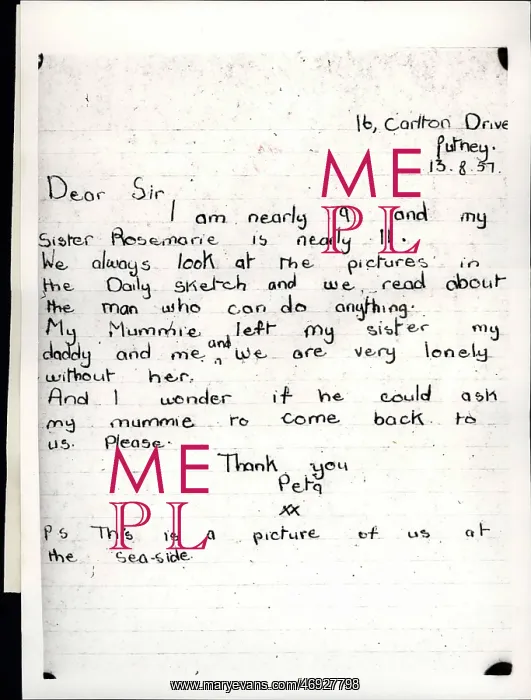 16, Carlton Drive
Putney.
13.8.57.
Dear Sir
I am nearly 9 and my
Sister Rosemarie is nearly 11.
We always look at the pictures in
the Daily sketch and we read about
the man who can do anything.
My Mummie left my sister my
daddy and me and We are very lonely
without her.
And I wonder if he could ask
my mummie to come back to
us. Please.
Thank you
Peta
xx
PS This is a picture of us at
the sea-side.
ME
PL
ME
PL
www.maryevans.com/46927798